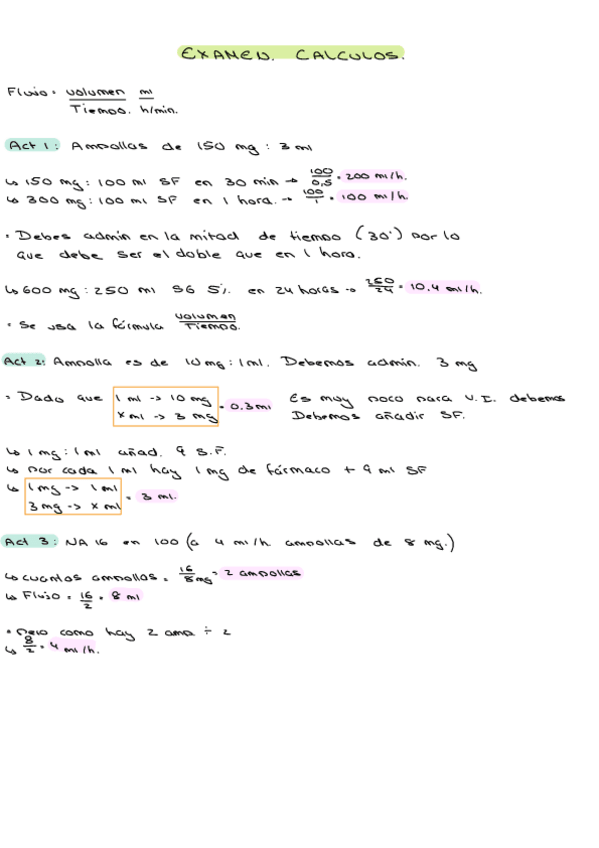 EXAMEN. CALCULOS.
Flujo = volumen ml
Tiempo. h/min.
Act 1: Ampollas de 150 mg : 3 ml
↳ 150 mg : 100 ml SF en 30 min → 100/0,5 = 200 ml/h.
↳ 300 mg : 100 ml SF en 1 hora. → 100/1 = 100 ml/h.
• Debes admin en la mitad de tiempo (30') por lo
que debe ser el doble que en 1 hora.
↳ 600 mg : 250 ml SG 5%. en 24 horas → 250/24 = 10.4 ml/h.
• Se usa la fórmula volumen/Tiempo.
Act 2: Ampolla es de 10 mg : 1 ml. Debemos admin. 3 mg
• Dado que 1 ml -> 10 mg
x ml -> 3 mg = 0.3 ml
Es muy poco para V.I. debemos
Debemos añadir SF.
↳ 1 mg : 1 ml añad. 9 S.F.
↳ por cada 1 ml hay 1 mg de fármaco + 9 ml SF
↳ 1 mg -> 1 ml
3 mg -> x ml = 3 ml.
Act 3: NA 16 en 100 (a 4 ml/h ampollas de 8 mg.)
↳ cuantas ampollas = 16/8mg = 2 ampollas
↳ Flujo = 16/2 = 8 ml
• pero como hay 2 amp ÷ 2
↳ 8/2 = 4 ml/h.